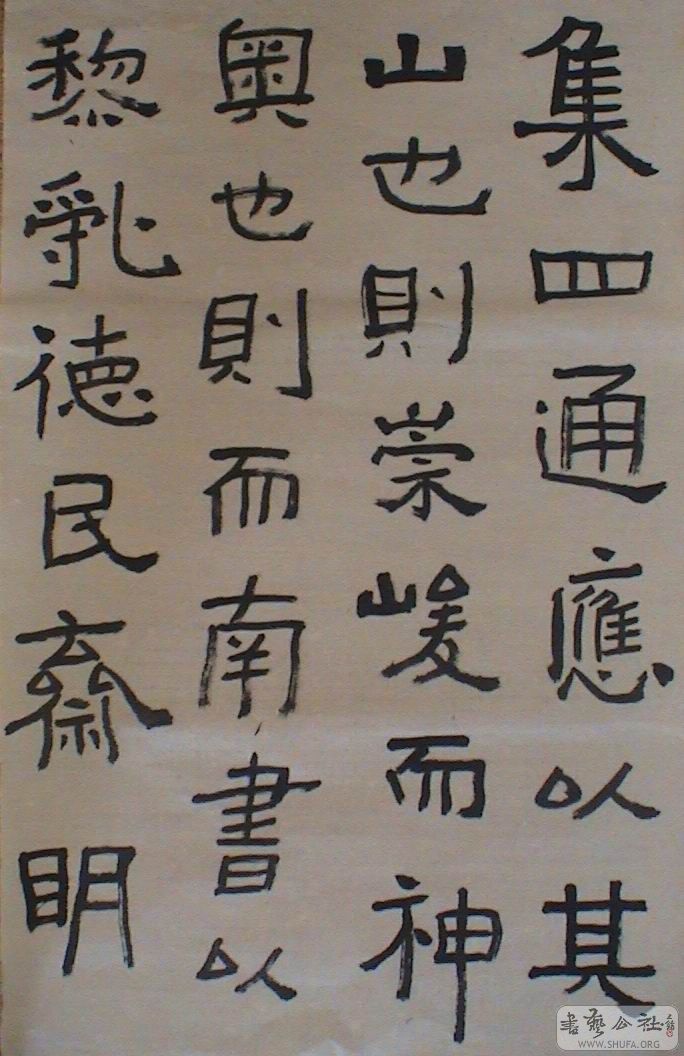 集四通應以其
山也則崇峻而神
奧也則而南書以
黎德民齋明
書藝公社
WWW.SHUFA.ORG